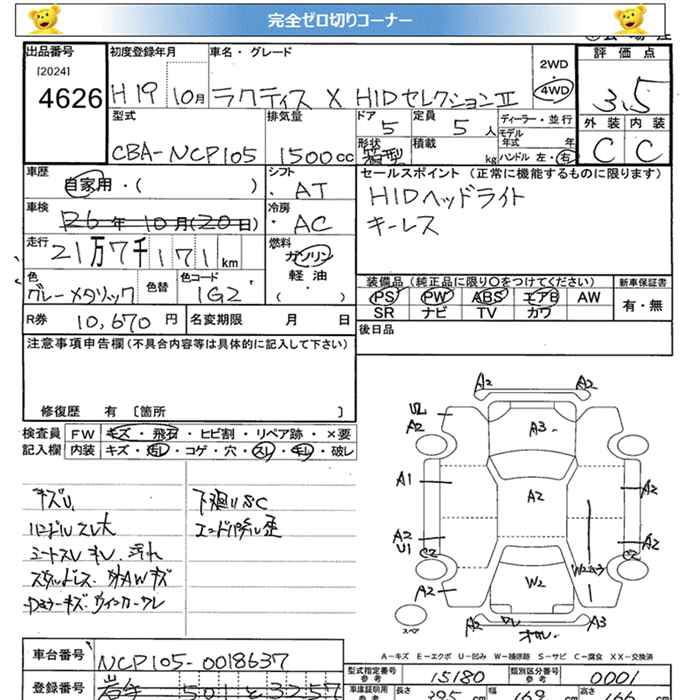 完全ゼロ切りコーナー
出品番号 初度登録年月 車名・グレード 評価点
[2024]
4626 H19 10月 ラクティス X HIDセレクションⅡ 2WD・4WD 3.5
型式 排気量 ドア 5 定員 5人 ディーラー・並行 外装 内装
モデル年式 年
CBA-NCP105 1500cc 形状 箱型 積載 kg ハンドル 左・右 C C
車歴 シフト セールスポイント (正常に機能するものに限ります)
自家用・( ) ・AT HIDヘッドライト
車検 冷房 キーレス
26年10月(20日) ・AC
走行 燃料
21万7千171km ガソリン
軽油
( )
色 色替 色コード
グレーメタリック 1G2
装備品 (純正品に限り○をつけてください) 新車保証書
PS PW ABS エアB AW 有・無
SR ナビ TV カワ
R券 10,670円 名変期限 月 日 後日品
注意事項申告欄(不具合内容等は具体的に記入して下さい)
修復歴 有 〔箇所 〕
検査員 FW キズ・飛石・ヒビ割・リペア跡・×要
記入欄 内装 キズ・汚レ・コゲ・穴・スレ・キレ・破レ
キズU 下廻りSC
ハンドルスレ大
シートスレ キレ・汚れ
スタッドレス
A2 A2
A2 A3
A1 A2 A2
A2 U1 A2
A2 W2
A3
スペア
A-キズ E-エクボ U-凹み W-補修跡 S-サビ C-腐食 XX-交換済
車台番号 NCP105-0018637 型式指定番号 参考 15180 類別区分番号 参考 0001
登録番号 501 3257 車庫証明用 参考 長さ 395cm 幅 169cm 高さ 166cm